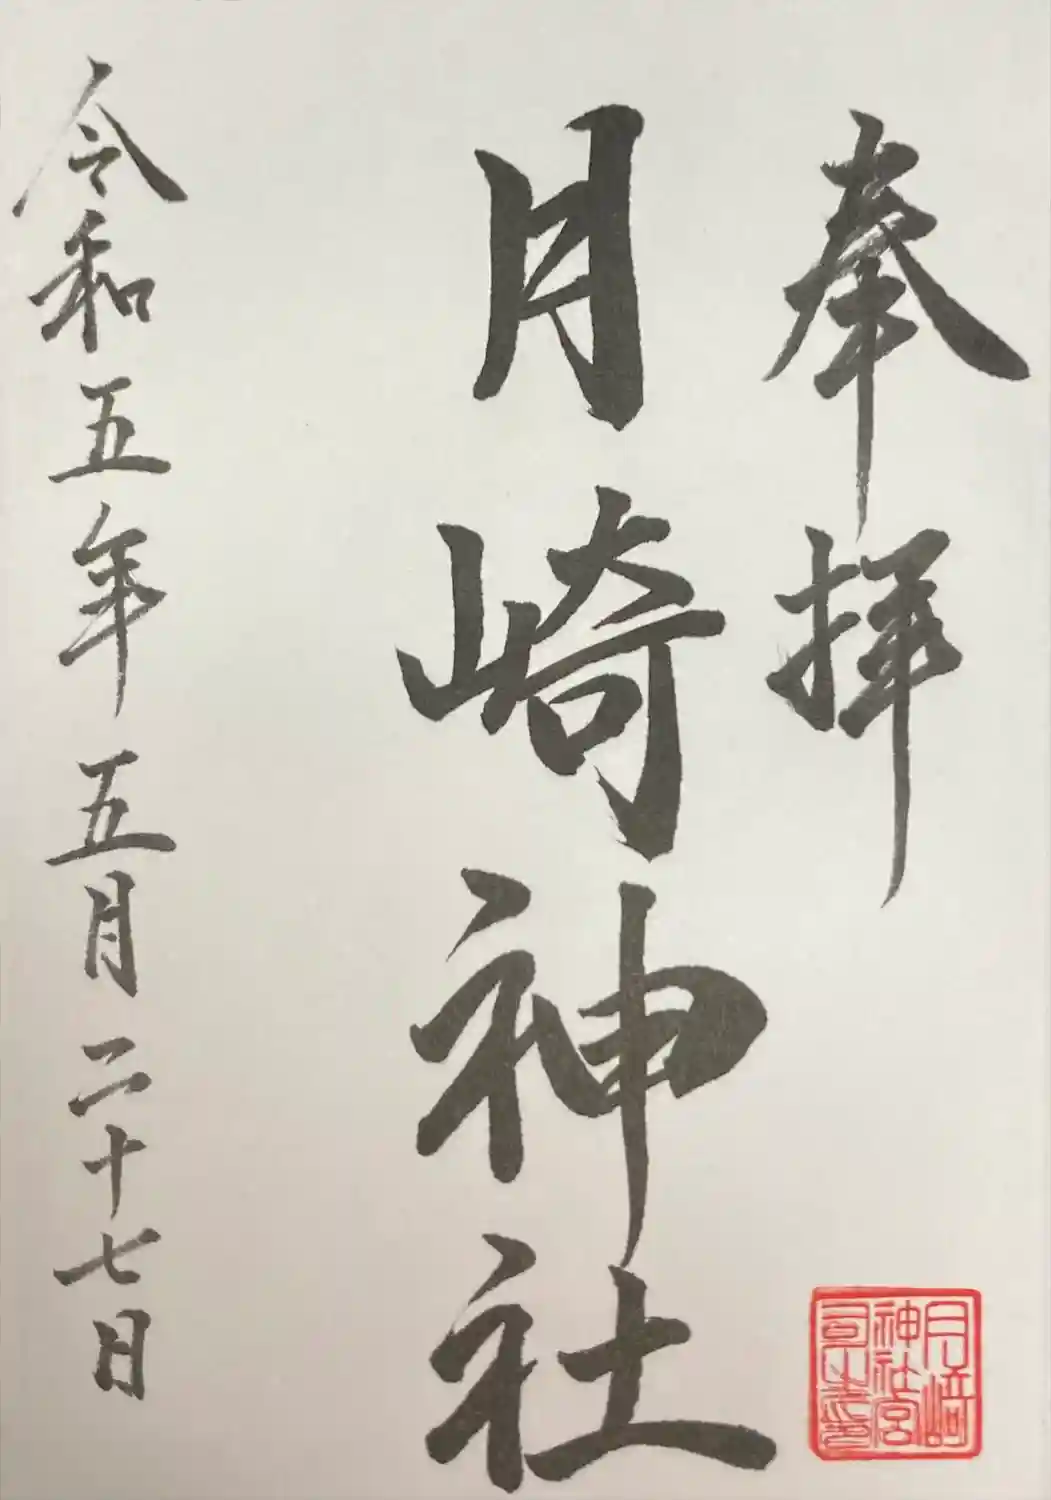 奉拝
月崎神社
令和五年五月二十七日
月﨑
神社宮
司之印